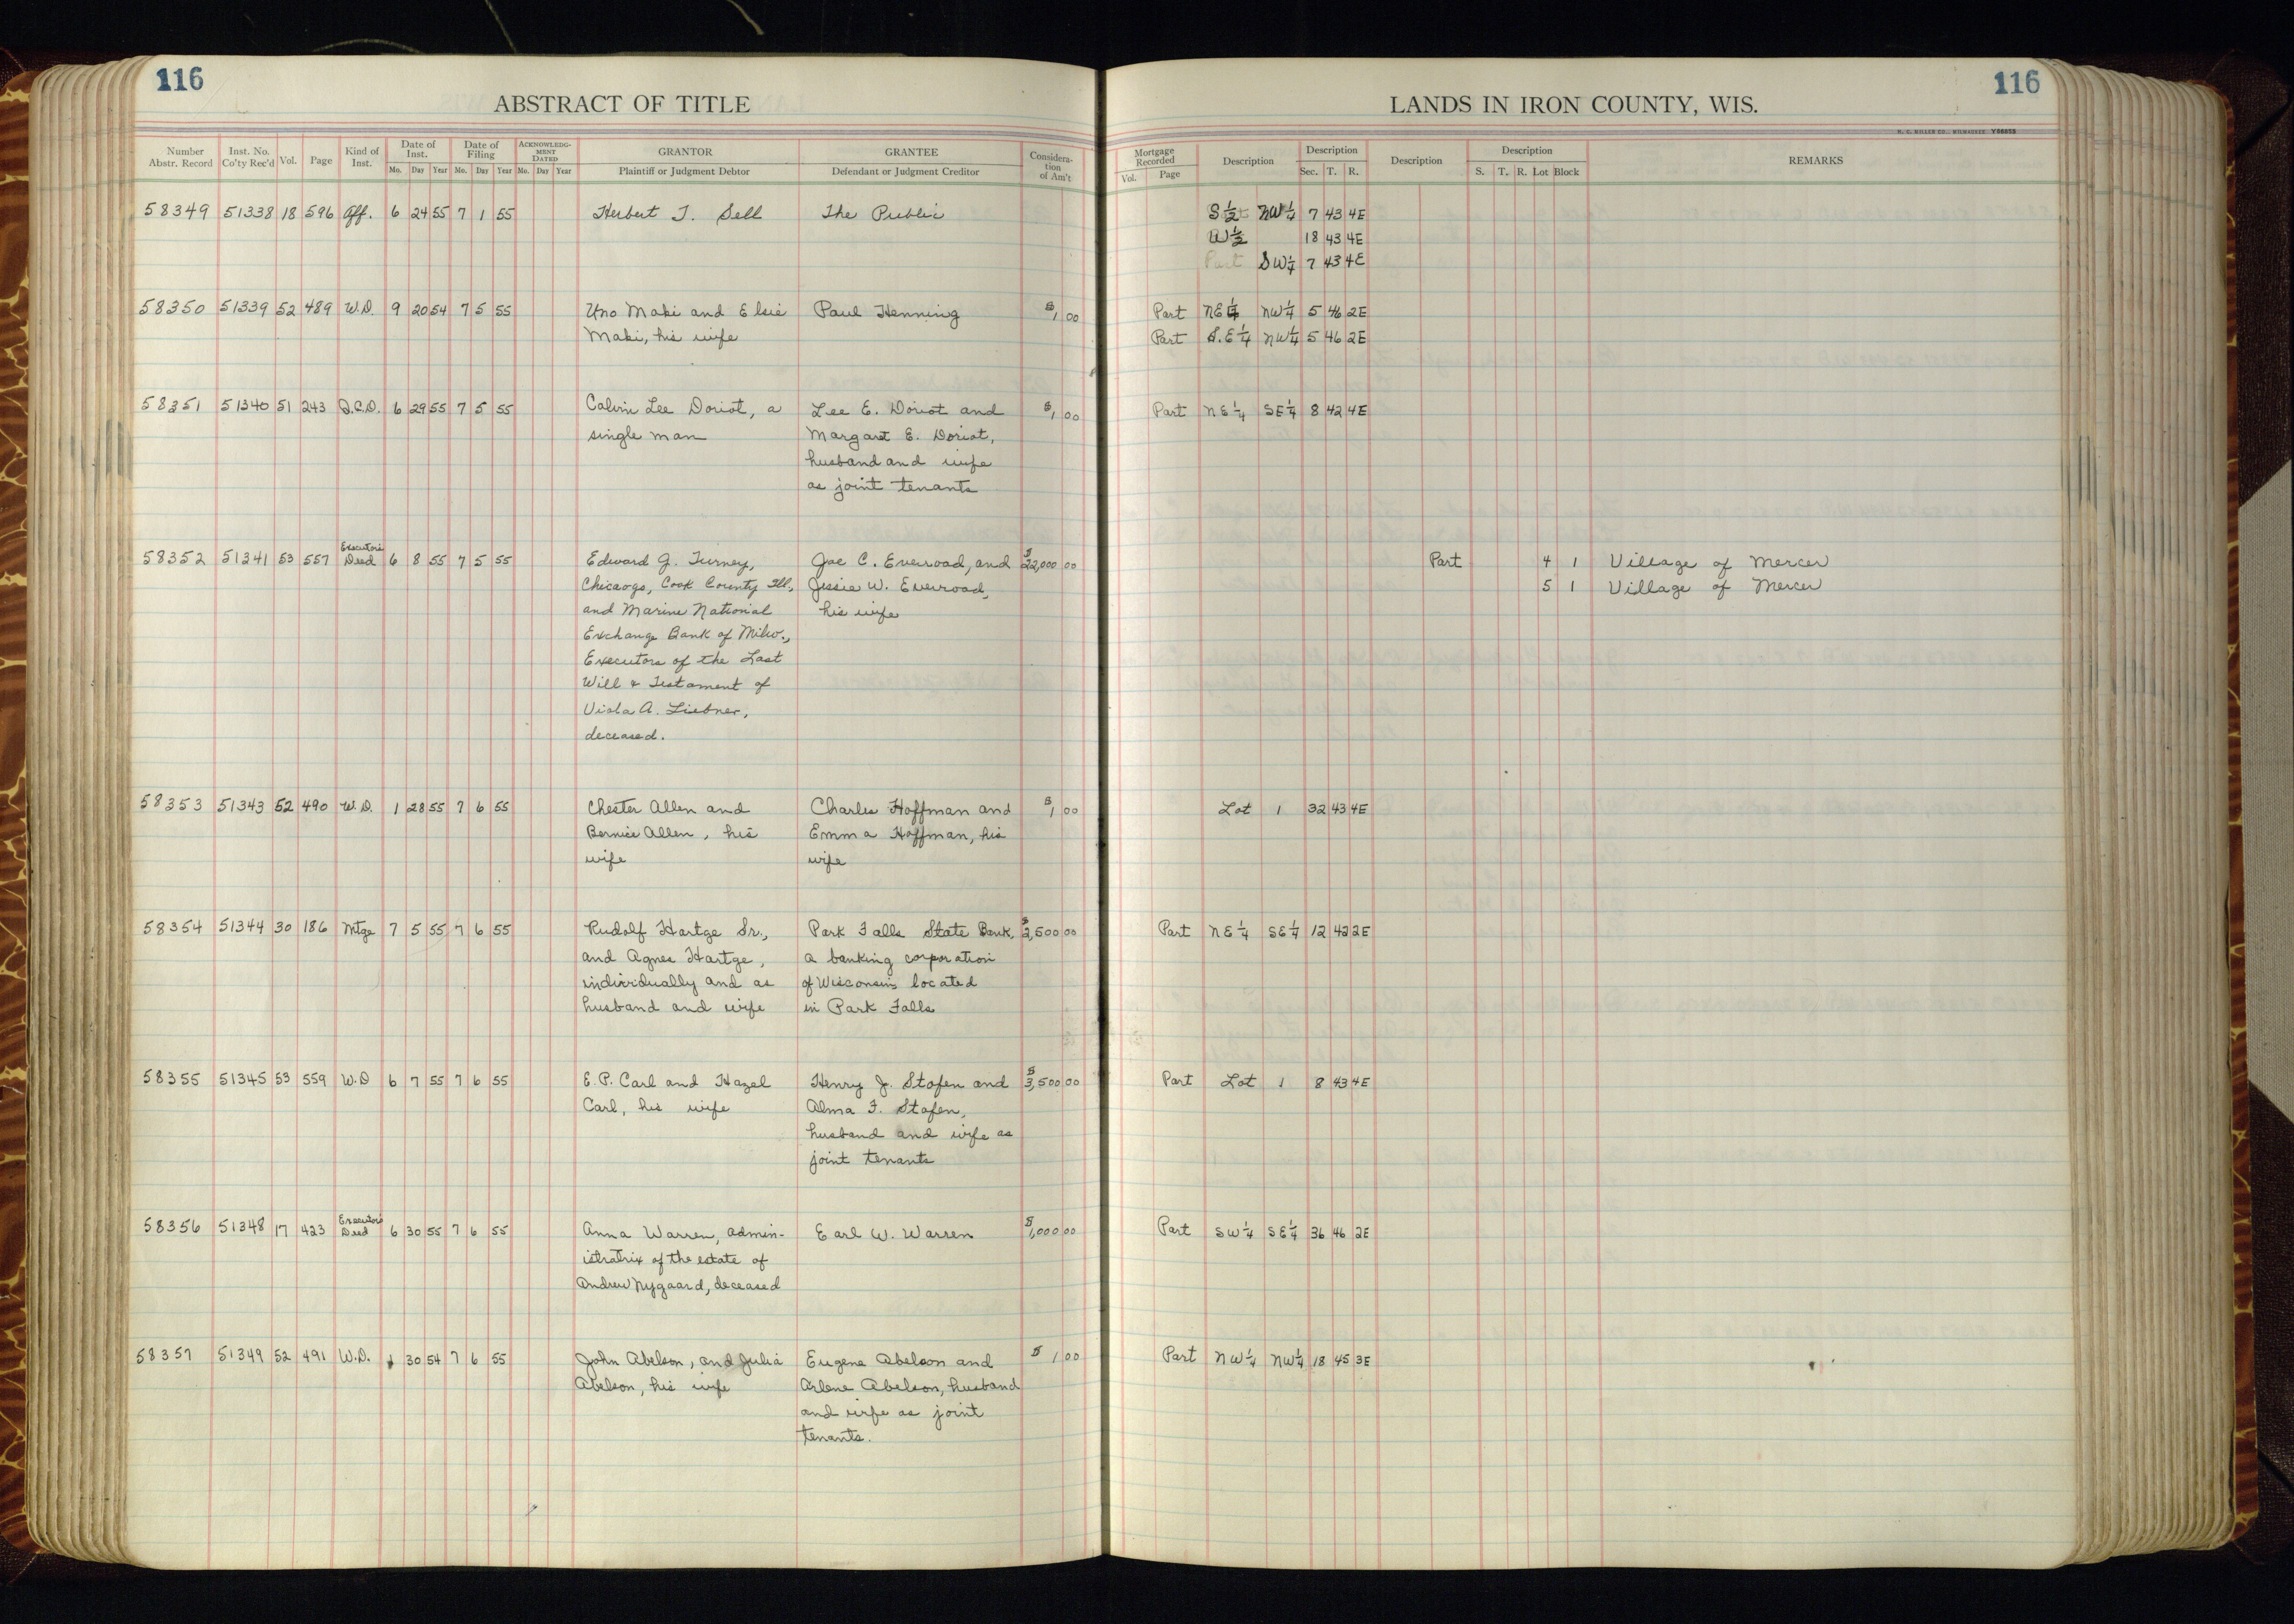 116
ABSTRACT OF TITLE
Number Abstr. Record Inst. No. Co'ty Rec'd Vol. Page Kind of Inst. Date of Inst. Mo. Day Year Date of Filing Mo. Day Year ACKNOWLEDGMENT DATED Mo. Day Year GRANTOR Plaintiff or Judgment Debtor GRANTEE Defendant or Judgment Creditor Consideration of Am't
116
LANDS IN IRON COUNTY, WIS.
H. C. MILLER CO., MILWAUKEE Y08853
Mortgage Recorded Vol. Page Description Description Sec. T. R. Description Description S. T. R. Lot Block REMARKS
58349 51338 18 596 Aff. 6 24 55 7 1 55 Herbert T. Sell The Public S½ NW¼ 7 43 4E
W½ 18 43 4E
Part SW¼ 7 43 4E
58350 51339 52 489 W.D. 9 20 54 7 5 55 Uno Maki and Elsie Paul Henning $1 00 Part NE¼ NW¼ 5 46 2E
Maki, his wife Part S.E¼ NW¼ 5 46 2E
58351 51340 51 243 Q.C.D. 6 29 55 7 5 55 Calvin Lee Doriot, a Lee E. Doriot and $1 00 Part NE¼ SE¼ 8 42 4E
single man Margaret E. Doriot,
husband and wife
as joint tenants
58352 51341 53 557 Executor's Deed 6 8 55 7 5 55 Edward J. Turney, Joe C. Everroad, and $22,000 00 Part 4 1 Village of Mercer
Chicaogo, Cook County Ill., Jessie W. Everroad, 5 1 Village of Mercer
and Marine National his wife
Exchange Bank of Milw.,
Executors of the Last
Will & Testament of
Viola A. Liebner,
deceased.
58353 51343 52 490 W.D. 1 28 55 7 6 55 Chester Allen and Charles Hoffman and $1 00 Lot 1 32 43 4E
Bernice Allen, his Emma Hoffman, his
wife wife
58354 51344 30 186 Mtge 7 5 55 7 6 55 Rudolf Hartge Sr., Park Falls State Bank, $2,500 00 Part NE¼ SE¼ 12 42 2E
and Agnes Hartge, a banking corporation
individually and as of Wisconsin, located
husband and wife in Park Falls
58355 51345 53 559 W.D 6 7 55 7 6 55 E.P. Carl and Hazel Henry J. Stofen and $3,500 00 Part Lot 1 8 43 4E
Carl, his wife Alma F. Stofen,
husband and wife as
joint tenants
58356 51348 17 423 Executor's Deed 6 30 55 7 6 55 Anna Warren, admin- Earl W. Warren $1,000 00 Part SW¼ SE¼ 36 46 2E
istratrix of the estate of
Andrew Nygaard, deceased
58357 51349 52 491 W.D. 30 54 7 6 55 John Abelson, and Julia Eugene Abelson and $1 00 Part NW¼ NW¼ 18 45 3E
Abelson, his wife Arlene Abelson, husband
and wife as joint
tenants.